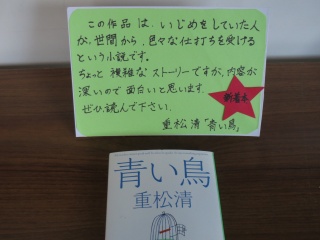 この作品は、いじめをしていた人
が、世間から、色々な仕打ちを受ける
という小説です。
ちょっと複雑なストーリーですが、内容が
深いので面白いと思います。
ぜひ、読んで下さい。
新着本
重松清「青い鳥」
青い鳥
重松清